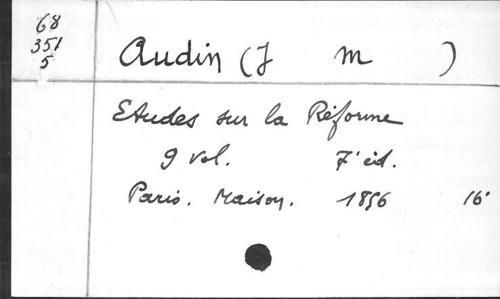 68
351
5
Audin (J M )
Etudes sur la Réforme
9 vol. 7' éd.
Paris. Maison. 1856 16'